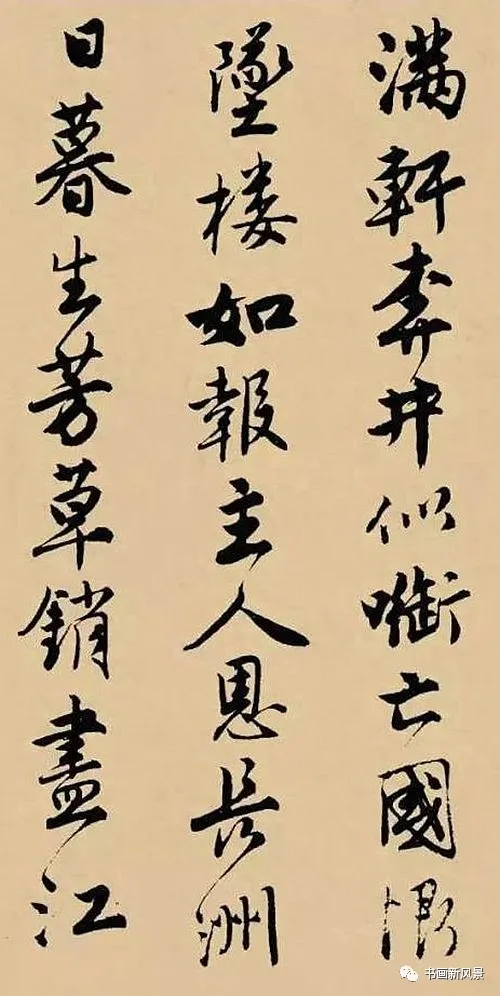 滿軒奔井似啣亡國恨
墜楼如報主人恩長洲
日暮生芳草銷盡江
书画新风景